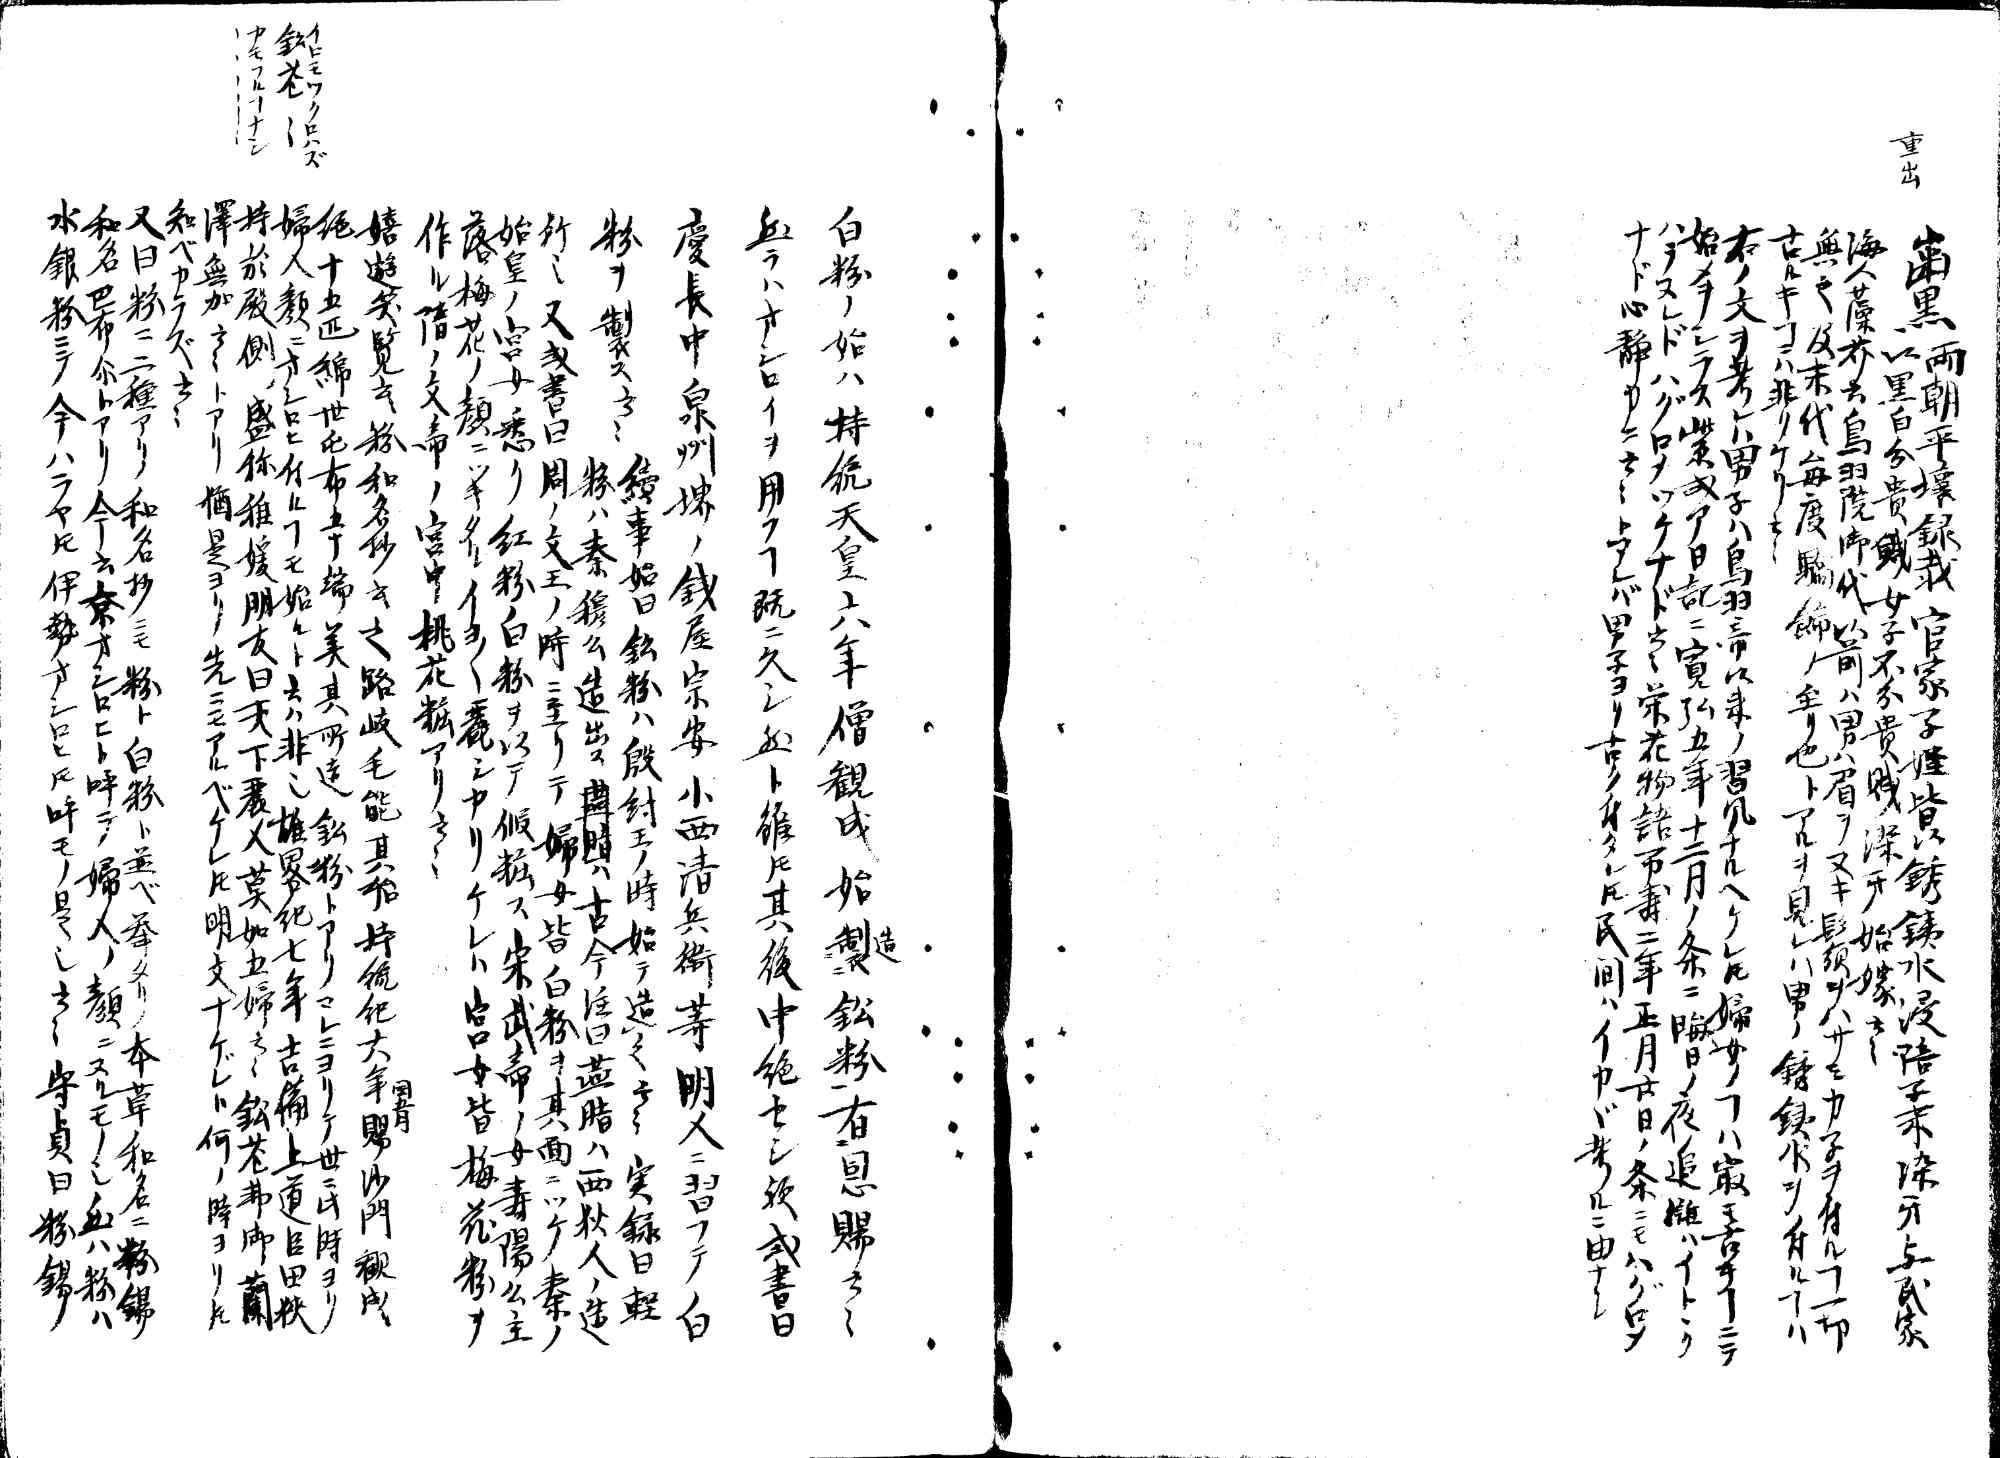 重出
歯黒 両朝平壌録载 官家子姪皆以銹鉄水浸陪子末染牙与民家
以黒白分貴賎女子不分貴賎染牙始嫁云々
海人藻芥云鳥羽院御代以前ハ男ハ眉ヲヌキ髭鬚ヲハサミカ子ヲ付ルヿ一切
無之及末代毎度驕飾ノ至リ也トアルヲ見レハ男ノ銹鉄水ヲ付ルヿハ
古ルキヿニハ非リケリ云々
右ノ文ヲ考レハ男子ハ鳥羽帝以来ノ習風ナルヘケレ𪜈婦女ノヿハ最モ古キヿニテ
始メヲシラス紫式ア日記ニ寛弘五年十二月ノ条ニ晦日ノ夜ノ追儺ハイトヽク
ハテヌレドハグロメツケナドト云々栄花物語万寿二年正月廿日ノ条ニモハグロメ
ナド心静カニ云々トアレバ男子ヨリ古ク付タレ𪜈民間ハイカヾ考ルニ由ナシ
白粉ノ始ハ持統天皇六年僧観成始製造ニ鉛粉一有ニ恩賜云々
然ラハオシロイヲ用フヿ既ニ久シ然ト雖𪜈其後中絶セシ欤或書曰
慶長中泉州堺ノ銭屋宗安小西清兵衛等明人ニ習フテ白
粉ヲ製ス云々 續事始曰鉛粉ハ殷紂王ノ時始テ造ルト云々実録曰軽
粉ハ秦穆公造出ス 古今注曰燕脂ハ西狄人ノ造
所ミ又或書曰周ノ文王ノ時ニ至リテ婦女皆白粉ヲ其面ニツケ秦ノ
始皇ノ宮女悉リ紅粉白粉ヲ以テ假粧ス宋武帝ノ女寿陽公主
落梅花ノ顔ニツキタルイヨ〱麗シカリケレハ宮女皆梅花粉ヲ
作ル隋ノ文帝ノ宮中桃花粧アリ云々
嬉遊笑覧云粉和名抄云之路岐毛能其始持統紀六年閏五月賜沙門観成
絁十五匹綿世屯布五十端美其所造鉛粉トアリコレニヨリテ世ニ此時ヨリ
婦人顔ニオシロヒ付ルヿモ始ルト云ハ非ミ雄畧紀七年吉備上道臣田狭
持於殿側ノ盛称稚媛朋友曰天下麗人莫如吾婦云々鉛花弗御蘭
澤無加云々トアリ猶是ヨリ先ニモアルベケレ𪜈明文ナケレト何ノ時ヨリ𪜈
知ベカラズ云々
又曰粉ニ二種アリ和名抄ニモ粉ト白粉ト並ベ挙タリ本草和名ニ粉錫
和名巴布尓トアリ今云京オシロヒト呼テ婦人ノ顔ニヌルモノミ然ハ粉ハ
水銀粉ニテ今ハラヤ𪜈伊勢オシロヒ𪜈呼モノ是ミ云々守貞曰粉錫ノ
イトモツクロハズ
鉛花ー
カモフルヿナシ